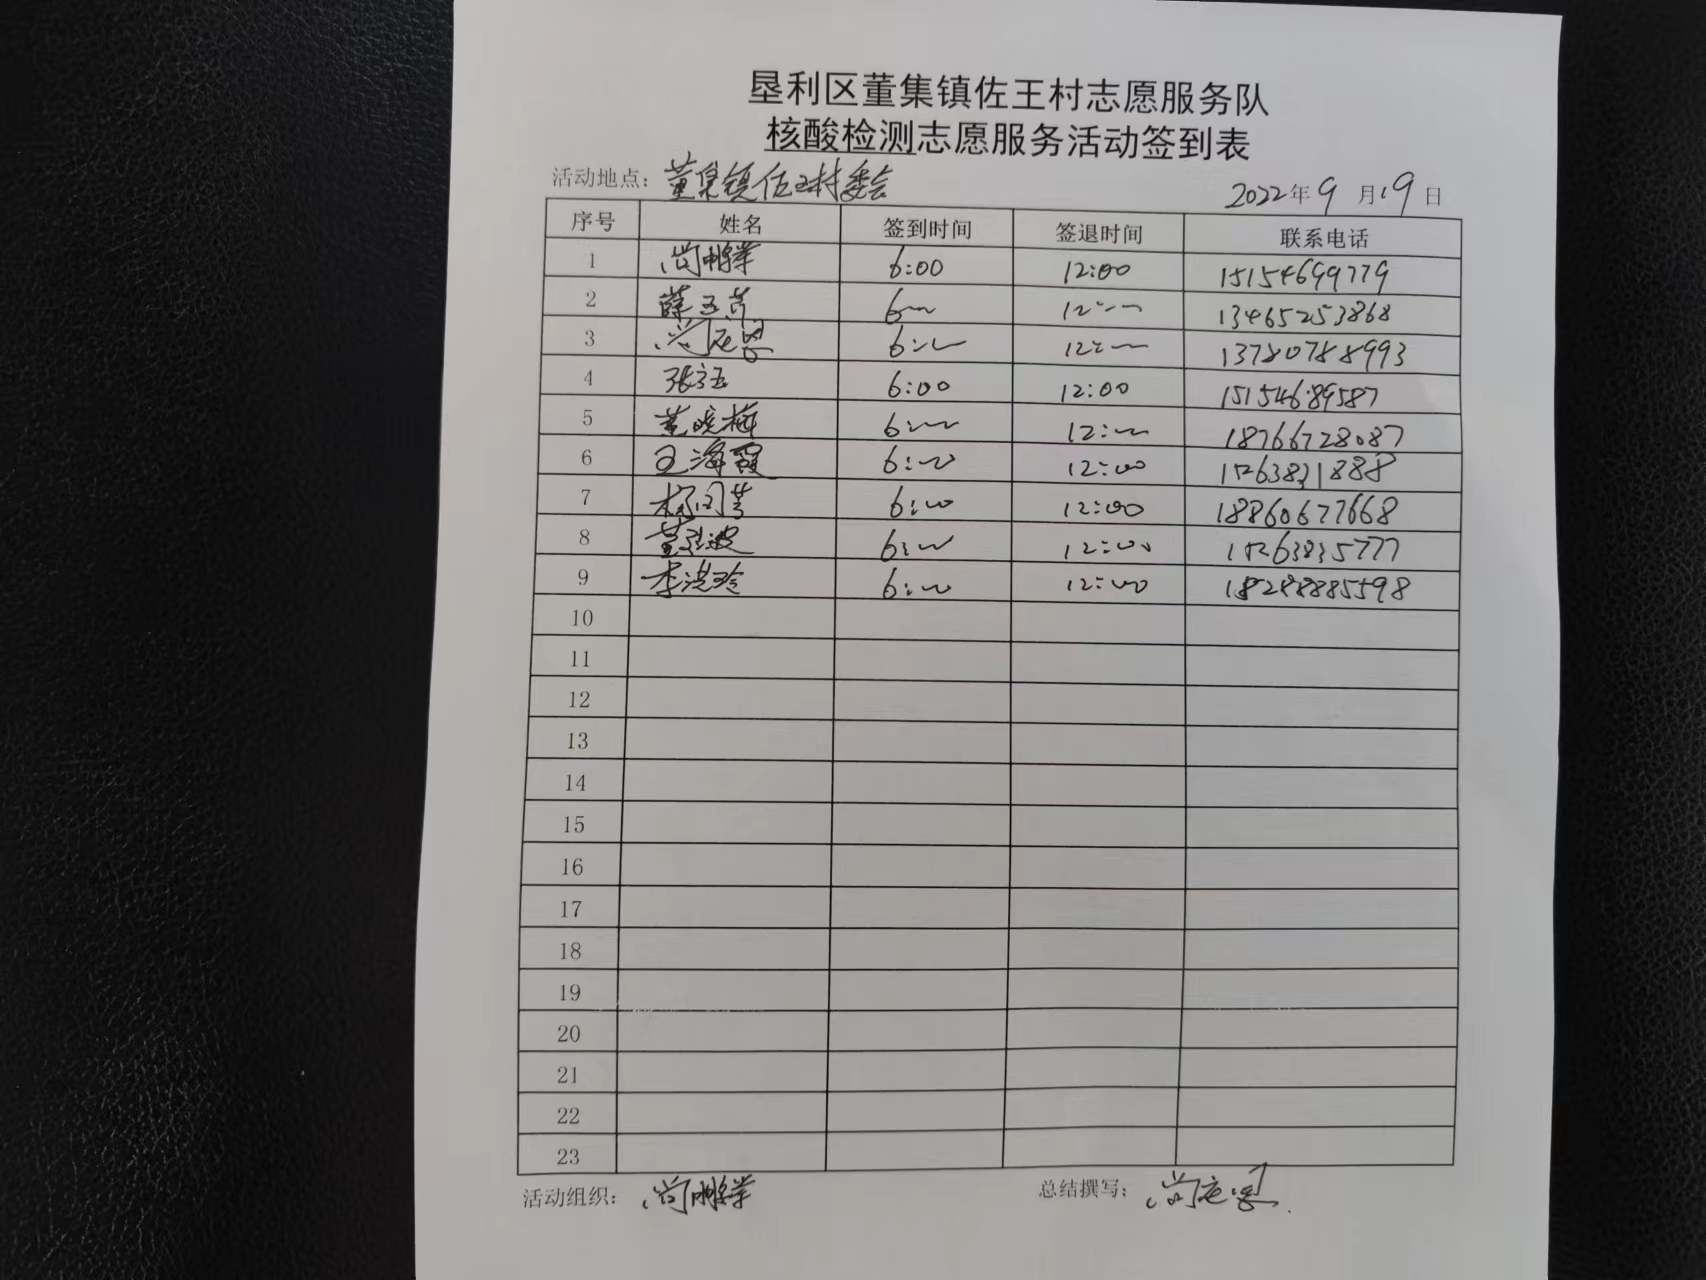 垦利区董集镇佐王村志愿服务队
核酸检测志愿服务活动签到表
活动地点：董集镇佐王村委会 2022年9月19日
序号 姓名 签到时间 签退时间 联系电话
1 尚鹏举 6:00 12:00 15154699779
2 薛玉芹 6:00 12:00 13465253868
3 尚 6:00 12:00 13780788993
4 张 6:00 12:00 15154689587
5 董晓梅 6:00 12:00 18766728087
6 王海霞 6:00 12:00 15263831888
7 杨 6:00 12:00 18860677668
8 董 波 6:00 12:00 15263835777
9 李洪玲 6:00 12:00 18288885598
10
11
12
13
14
15
16
17
18
19
20
21
22
23
活动组织：尚鹏举 总结撰写：尚